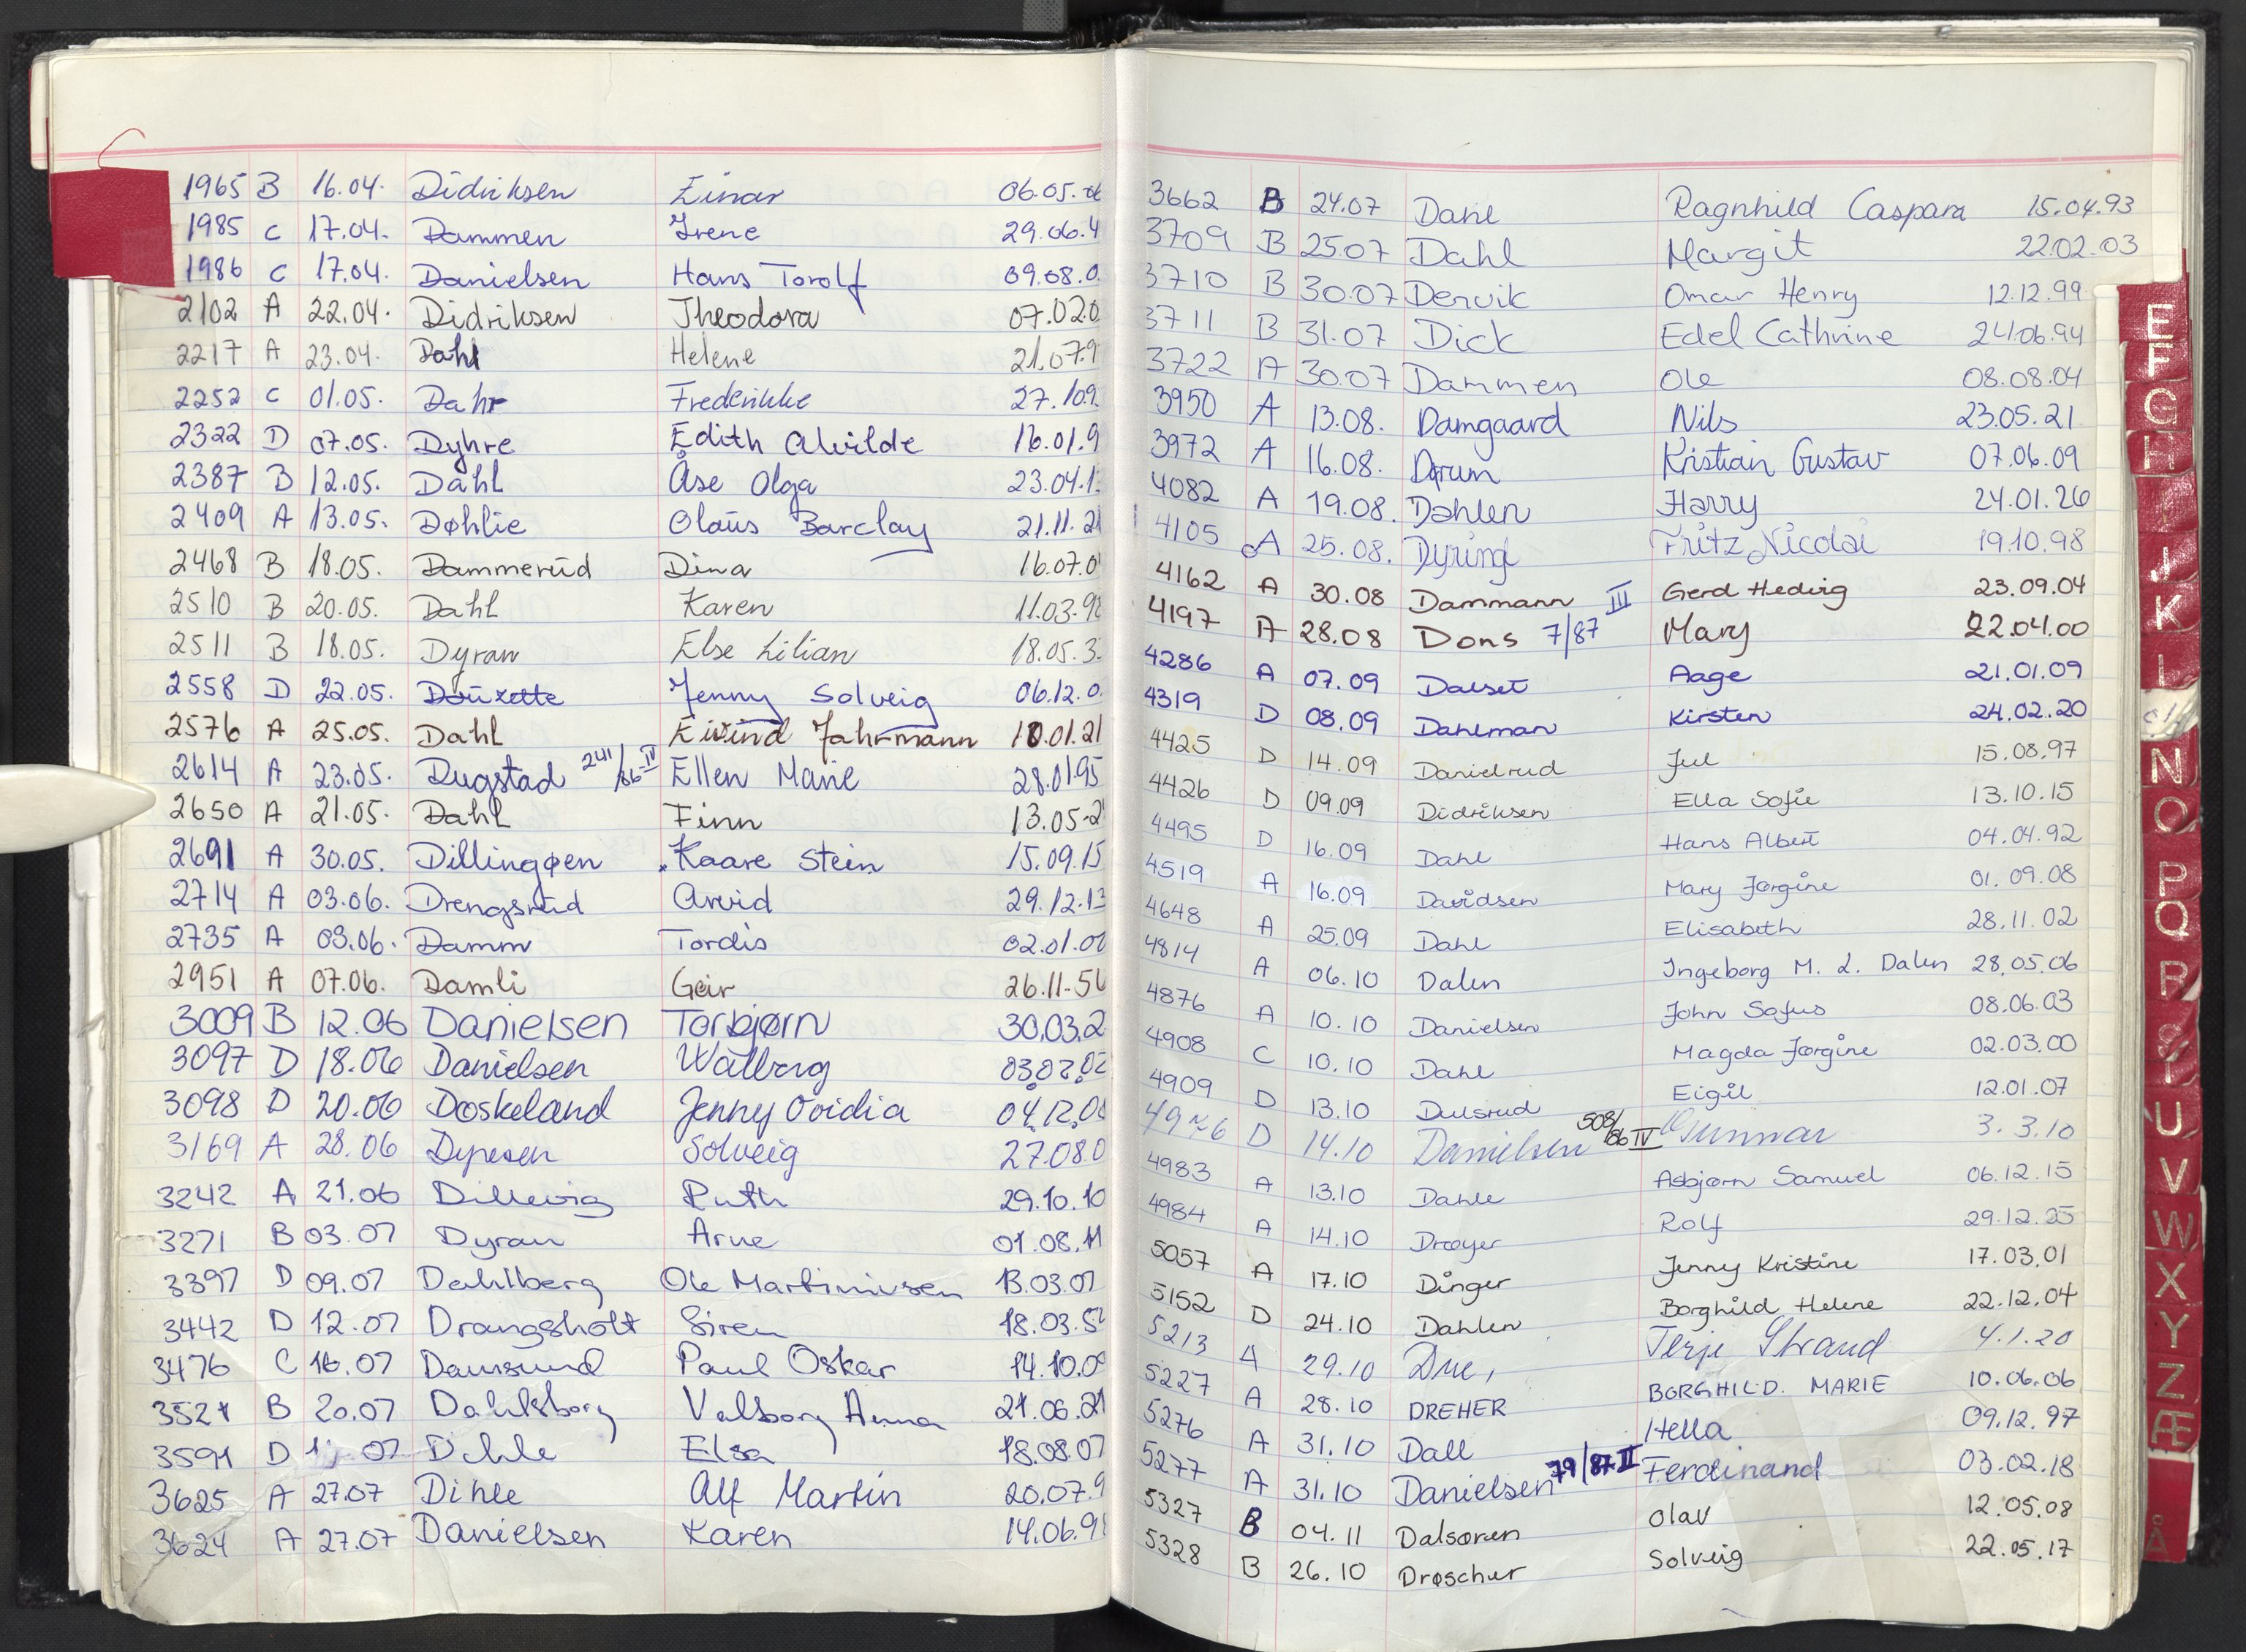 1965 B 16.04. Didriksen Einar 06.05.06
1985 C 17.04. Dammen Irene 29.06.4
1986 C 17.04. Danielsen Hans Torolf 09.08.0
2102 A 22.04. Didriksen Theodora 07.02.0
2217 A 23.04. Dahl Helene 21.07.9
2252 C 01.05. Dahr Frederikke 27.10.9
2322 D 07.05. Dyhre Edith Alvilde 16.01.9
2387 B 12.05. Dahl Åse Olga 23.04.1
2409 A 13.05. Døhlie Olaüs Barclay 21.11.21
2468 B 18.05. Dammerüd Dina 16.07.0
2510 B 20.05. Dahl Karen 11.03.98
2511 B 18.05. Dyran Else Lilian 18.05.3
2558 D 22.05. Doüzette Jenny Solveig 06.12.0
2576 A 25.05. Dahl Eivind Jahrmann 10.01.21
2614 A 23.05. Dugstad 241/86-IV Ellen Marie 28.01.95
2650 A 21.05. Dahl Finn 13.05.2
2691 A 30.05. Dillingøen Kaare Stein 15.09.15
2714 A 03.06. Drengsrüd Arvid 29.12.13
2735 A 03.06. Damm Tordis 02.01.00
2951 A 07.06. Damli Geir 26.11.56
3009 B 12.06 Danielsen Torbjørn 30.03.2
3097 D 18.06 Danielsen Walborg 03.02.02
3098 D 20.06 Doskeland Jenny Ovidia 04.12.08
3169 A 28.06 Dypesen Solveig 27.08.0
3242 A 21.06 Dillevig Ruth 29.10.10
3271 B 03.07 Dyran Arne 01.08.11
3397 D 09.07 Dahlberg Ole Martiniusen 13.03.07
3442 D 12.07 Drangsholt Siren 18.03.52
3476 C 16.07 Damsund Paul Oskar 14.10.09
3521 B 20.07 Dahlsborg Valborg Anna 21.06.21
3591 D 07 Dehle Elsa 18.08.07
3625 A 27.07 Dihle Alf Martin 20.07.9
3624 A 27.07 Danielsen Karen 14.06.98
3662 B 24.07 Dahl Ragnhild Caspara 15.04.93
3709 B 25.07 Dahl Margit 22.02.03
3710 B 30.07 Dervik Omar Henry 12.12.99
3711 B 31.07 Dick Edel Cathrine 24.06.94
3722 A 30.07 Dammen Ole 08.08.04
3950 A 13.08. Damgaard Nils 23.05.21
3972 A 16.08. Dørum Kristian Gustav 07.06.09
4082 A 19.08. Dahlen Harry 24.01.26
4105 A 25.08. Dyring Fritz Nicolai 19.10.98
4162 A 30.08 Dammann III Gerd Hedvig 23.09.04
4197 A 28.08 Dons 7/87 Mary 22.04.00
4286 A 07.09 Dalset Aage 21.01.09
4319 D 08.09 Dahlman Kirsten 24.02.20
4425 D 14.09 Danielrud Jul 15.08.97
4426 D 09.09 Didriksen Ella Sofie 13.10.15
4495 D 16.09 Dahl Hans Albert 04.04.92
4519 A 16.09 Davidsen Mary Jørgine 01.09.08
4648 A 25.09 Dahl Elisabeth 28.11.02
4814 A 06.10 Dalen Ingeborg M. L. Dalen 28.05.06
4876 A 10.10 Danielsen John Sofus 08.06.03
4908 C 10.10 Dahl Magda Jørgine 02.03.00
4909 D 13.10 Dulsrud Eigil 12.01.07
D 14.10 Danielsen 508/86 IV Gunnar 3.3.10
4983 A 13.10 Dahle Asbjørn Samuel 06.12.15
4984 A 14.10 Drøyer Rolf 29.12.25
5057 A 17.10 Dinger Jenny Kristine 17.03.01
5152 D 24.10 Dahlen Borghild Helene 22.12.04
5213 A 29.10 Due, Terje Strand 4.1.20
5227 A 28.10 DREHER BORGHILD. MARIE 10.06.06
5276 A 31.10 Dall Hella 09.12.97
5277 A 31.10 Danielsen 79/87 II Ferdinand 03.02.18
5327 B 04.11 Dalsøren Olav 12.05.08
5328 B 26.10 Drøscher Solveig 22.05.17
E
F
G
H
I
J
K
L
N
O
P
Q
R
S
T
U
V
W
X
Y
Z
Æ
Å